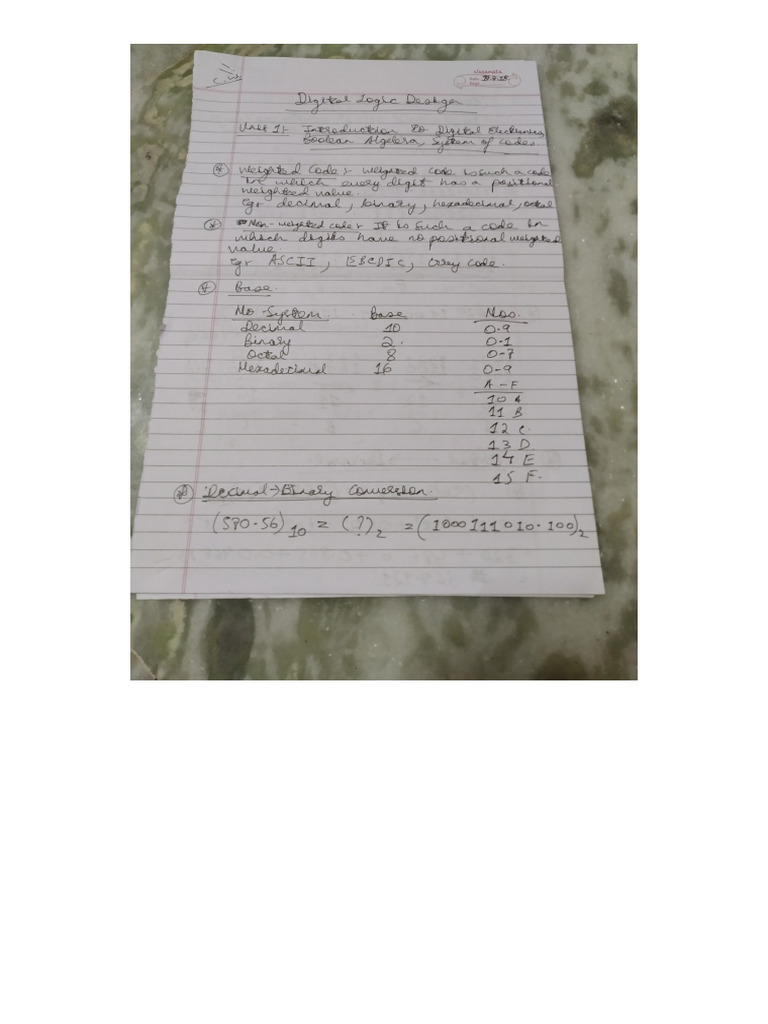 C.W
Vagamata
Date 18.7.25
Page
Digital Logic Design
Unit 1:- Introduction to Digital Electronics,
Boolean Algebra, System of codes.
* Weighted Code:- weighted code is such a code
in which every digit has a positional
weighted value.
eg:- decimal, binary, hexadecimal, octal
* Non-weighted code:- It is such a code in
which digits have no positional weighted
value.
eg:- ASCII, EBCDIC, Grey code.
* Base.
No-System Base Nos.
Decimal 10 0-9
Binary 2. 0-1
Octal 8 0-7
Hexadecimal 16 0-9
A-F
10 A
11 B
12 C.
13 D.
14 E
15 F.
* Decimal→Binary Conversion.
(570.56)10 = (?)2 = (1000111010.100)2